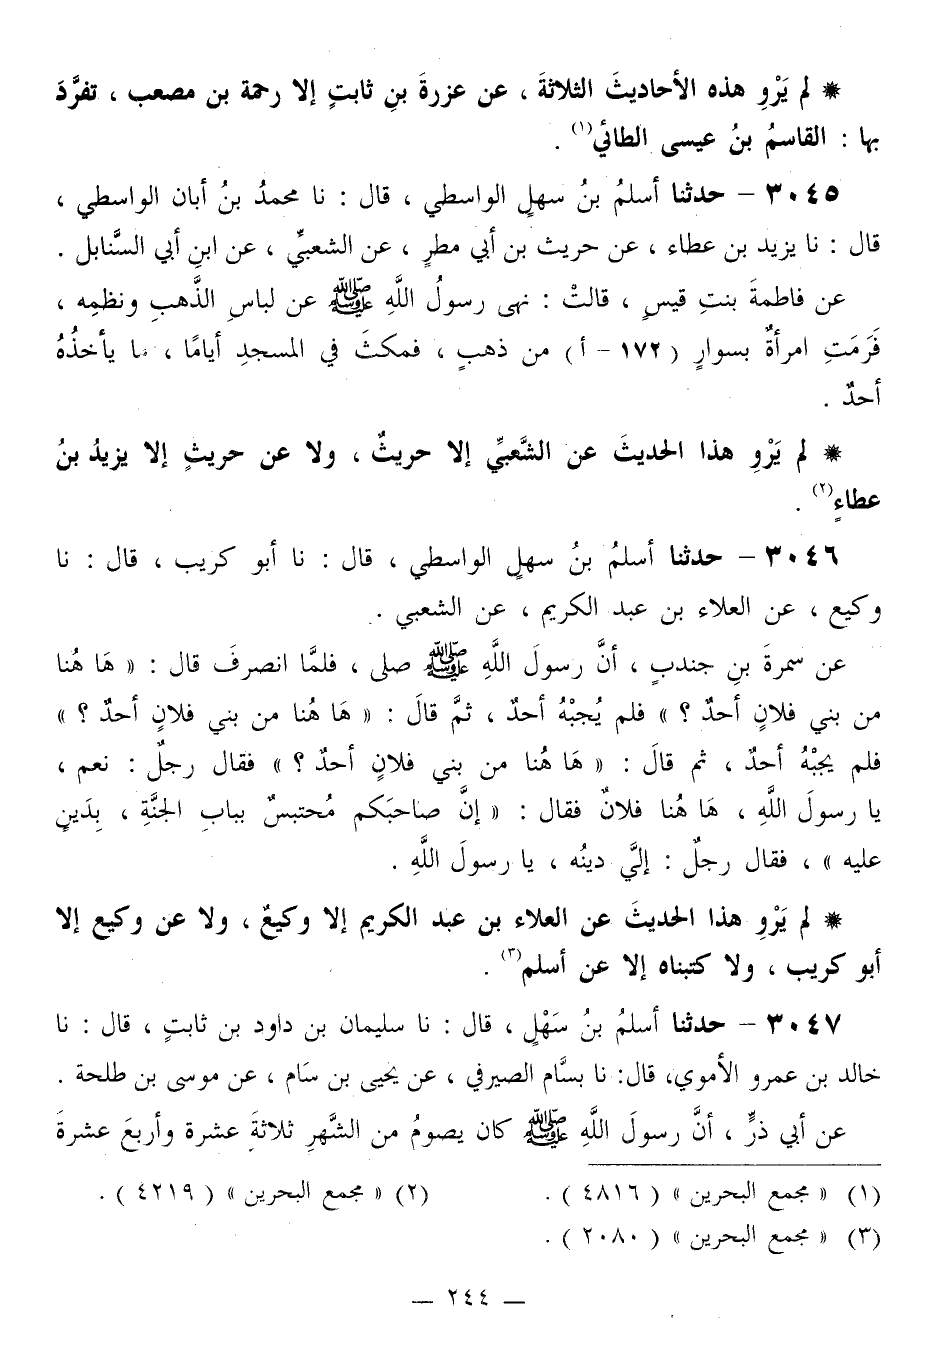 * لم يَرْوِ هذه الأحاديثَ الثلاثةَ ، عن عزرةَ بنِ ثابتٍ إلا رحمة بن مصعب ، تفرَّدَ
بها : القاسمُ بنُ عيسى الطائيُّ(١) .
٣٠٤٥ – حدثنا أسلمُ بنُ سهلٍ الواسطي ، قال : نا محمدُ بنُ أبان الواسطي ،
قال : نا يزيد بن عطاء ، عن حريث بن أبي مطرٍ ، عن الشعبيِّ ، عن ابنِ أبي السَّنابل .
عن فاطمةَ بنتِ قيسٍ ، قالتْ : نهى رسولُ اللَّهِ ﷺ عن لباسِ الذَّهبِ ونظمِه ،
فَرَمَتِ امرأةٌ بسوارٍ ( ١٧٢ – أ ) من ذهبٍ ، فمكثَ في المسجدِ أيامًا ، ما يأخذُهُ
أحدٌ .
* لم يَرْوِ هذا الحديثَ عن الشَّعبيِّ إلا حريثٌ ، ولا عن حريثٍ إلا يزيدُ بنُ
عطاءٍ(٢) .
٣٠٤٦ – حدثنا أسلمُ بنُ سهلٍ الواسطي ، قال : نا أبو كريب ، قال : نا
وكيع ، عن العلاء بن عبد الكريم ، عن الشعبي .
عن سمرةَ بنِ جندبٍ ، أنَّ رسولَ اللَّهِ ﷺ صلى ، فلمَّا انصرفَ قال : « هَا هُنا
من بني فلانٍ أحدٌ ؟ » فلم يُجبْهُ أحدٌ ، ثمَّ قالَ : « هَا هُنا من بني فلانٍ أحدٌ ؟ »
فلم يجبْهُ أحدٌ ، ثم قالَ : « هَا هُنا من بني فلانٍ أحدٌ ؟ » فقال رجلٌ : نعم ،
يا رسولَ اللَّهِ ، هَا هُنا فلانٌ فقال : « إنَّ صاحبَكم مُحتبسٌ ببابِ الجنَّةِ ، بِدَينٍ
عليه » ، فقال رجلٌ : إليَّ دينُه ، يا رسولَ اللَّهِ .
* لم يَرْوِ هذا الحديثَ عن العلاء بن عبد الكريم إلا وكيعٌ ، ولا عن وكيع إلا
أبو كريب ، ولا كتبناه إلا عن أسلم(٣) .
٣٠٤٧ – حدثنا أسلمُ بنُ سَهْلٍ ، قال : نا سليمان بن داود بن ثابتٍ ، قال : نا
خالد بن عمرو الأموي، قال: نا بسَّام الصيرفي ، عن يحيى بن سَام ، عن موسى بن طلحة .
عن أبي ذرٍّ ، أنَّ رسولَ اللَّهِ ﷺ كان يصومُ من الشَّهرِ ثلاثةَ عشرة وأربعَ عشرةَ
(١) « مجمع البحرين » ( ٤٨١٦ ) . (٢) « مجمع البحرين » ( ٤٢١٩ ) .
(٣) « مجمع البحرين » ( ٢٠٨٠ ) .
– ٢٤٤ –